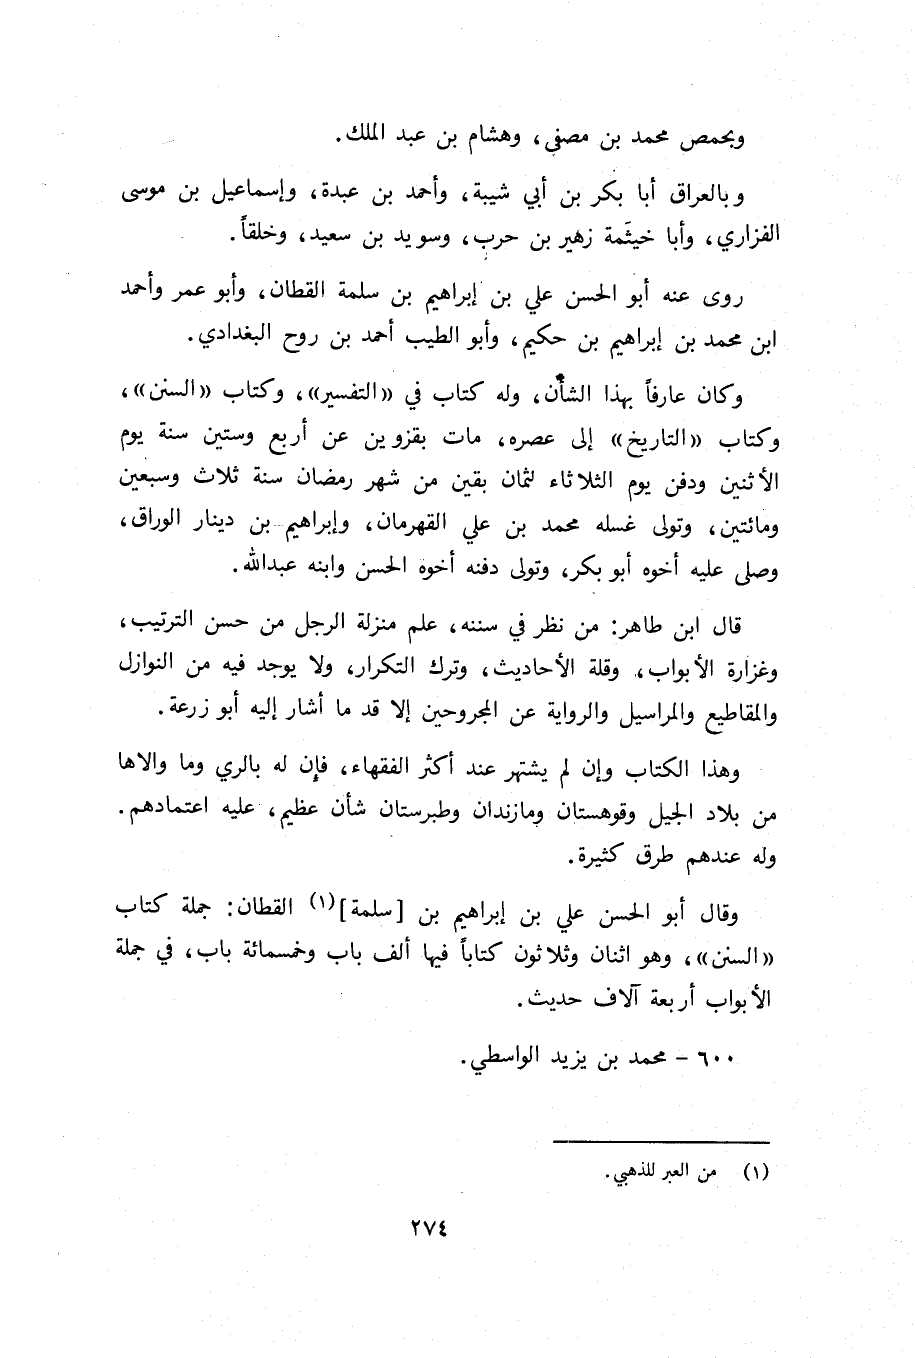 وبحمص محمد بن مصفى، وهشام بن عبد الملك.
وبالعراق أبا بكر بن أبي شيبة، وأحمد بن عبدة، وإسماعيل بن موسى
الفزاري، وأبا خيثَمة زهير بن حرب، وسويد بن سعيد، وخلقاً.
روى عنه أبو الحسن علي بن إبراهيم بن سلمة القطان، وأبو عمر وأحمد
ابن محمد بن إبراهيم بن حكيم، وأبو الطيب أحمد بن روح البغدادي.
وكان عارفاً بهذا الشأن، وله كتاب في «التفسير»، وكتاب «السنن»،
وكتاب «التاريخ» إلى عصره، مات بقزوين عن أربع وستين سنة يوم
الأثنين ودفن يوم الثلاثاء لثمان بقين من شهر رمضان سنة ثلاث وسبعين
ومائتين، وتولى غسله محمد بن علي القهرمان، وإبراهيم بن دينار الوراق،
وصلى عليه أخوه أبو بكر، وتولى دفنه أخوه الحسن وابنه عبدالله.
قال ابن طاهر: من نظر في سننه، علم منزلة الرجل من حسن الترتيب،
وغزارة الأبواب، وقلة الأحاديث، وترك التكرار، ولا يوجد فيه من النوازل
والمقاطيع والمراسيل والرواية عن المجروحين إلا قد ما أشار إليه أبو زرعة.
وهذا الكتاب وإن لم يشتهر عند أكثر الفقهاء، فإن له بالري وما والاها
من بلاد الجيل وقوهستان ومازندان وطبرستان شأن عظيم، عليه اعتمادهم.
وله عندهم طرق كثيرة.
وقال أبو الحسن علي بن إبراهيم بن [سلمة](١) القطان: جملة كتاب
«السنن»، وهو اثنان وثلاثون كتاباً فيها ألف باب وخمسمائة باب، في جملة
الأبواب أربعة آلاف حديث.
٦٠٠ - محمد بن يزيد الواسطي.
(١) من العبر للذهبي.
٢٧٤